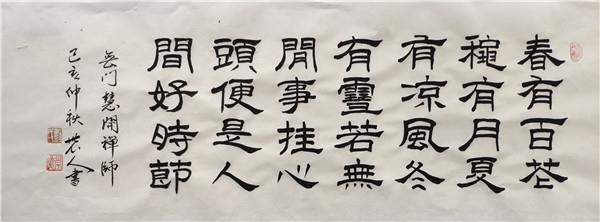 春有百花
穐有月夏
有凉風冬
有雪若無
閒事挂心
頭便是人
間好時節
无门慧開禪師
己亥仲秋人書